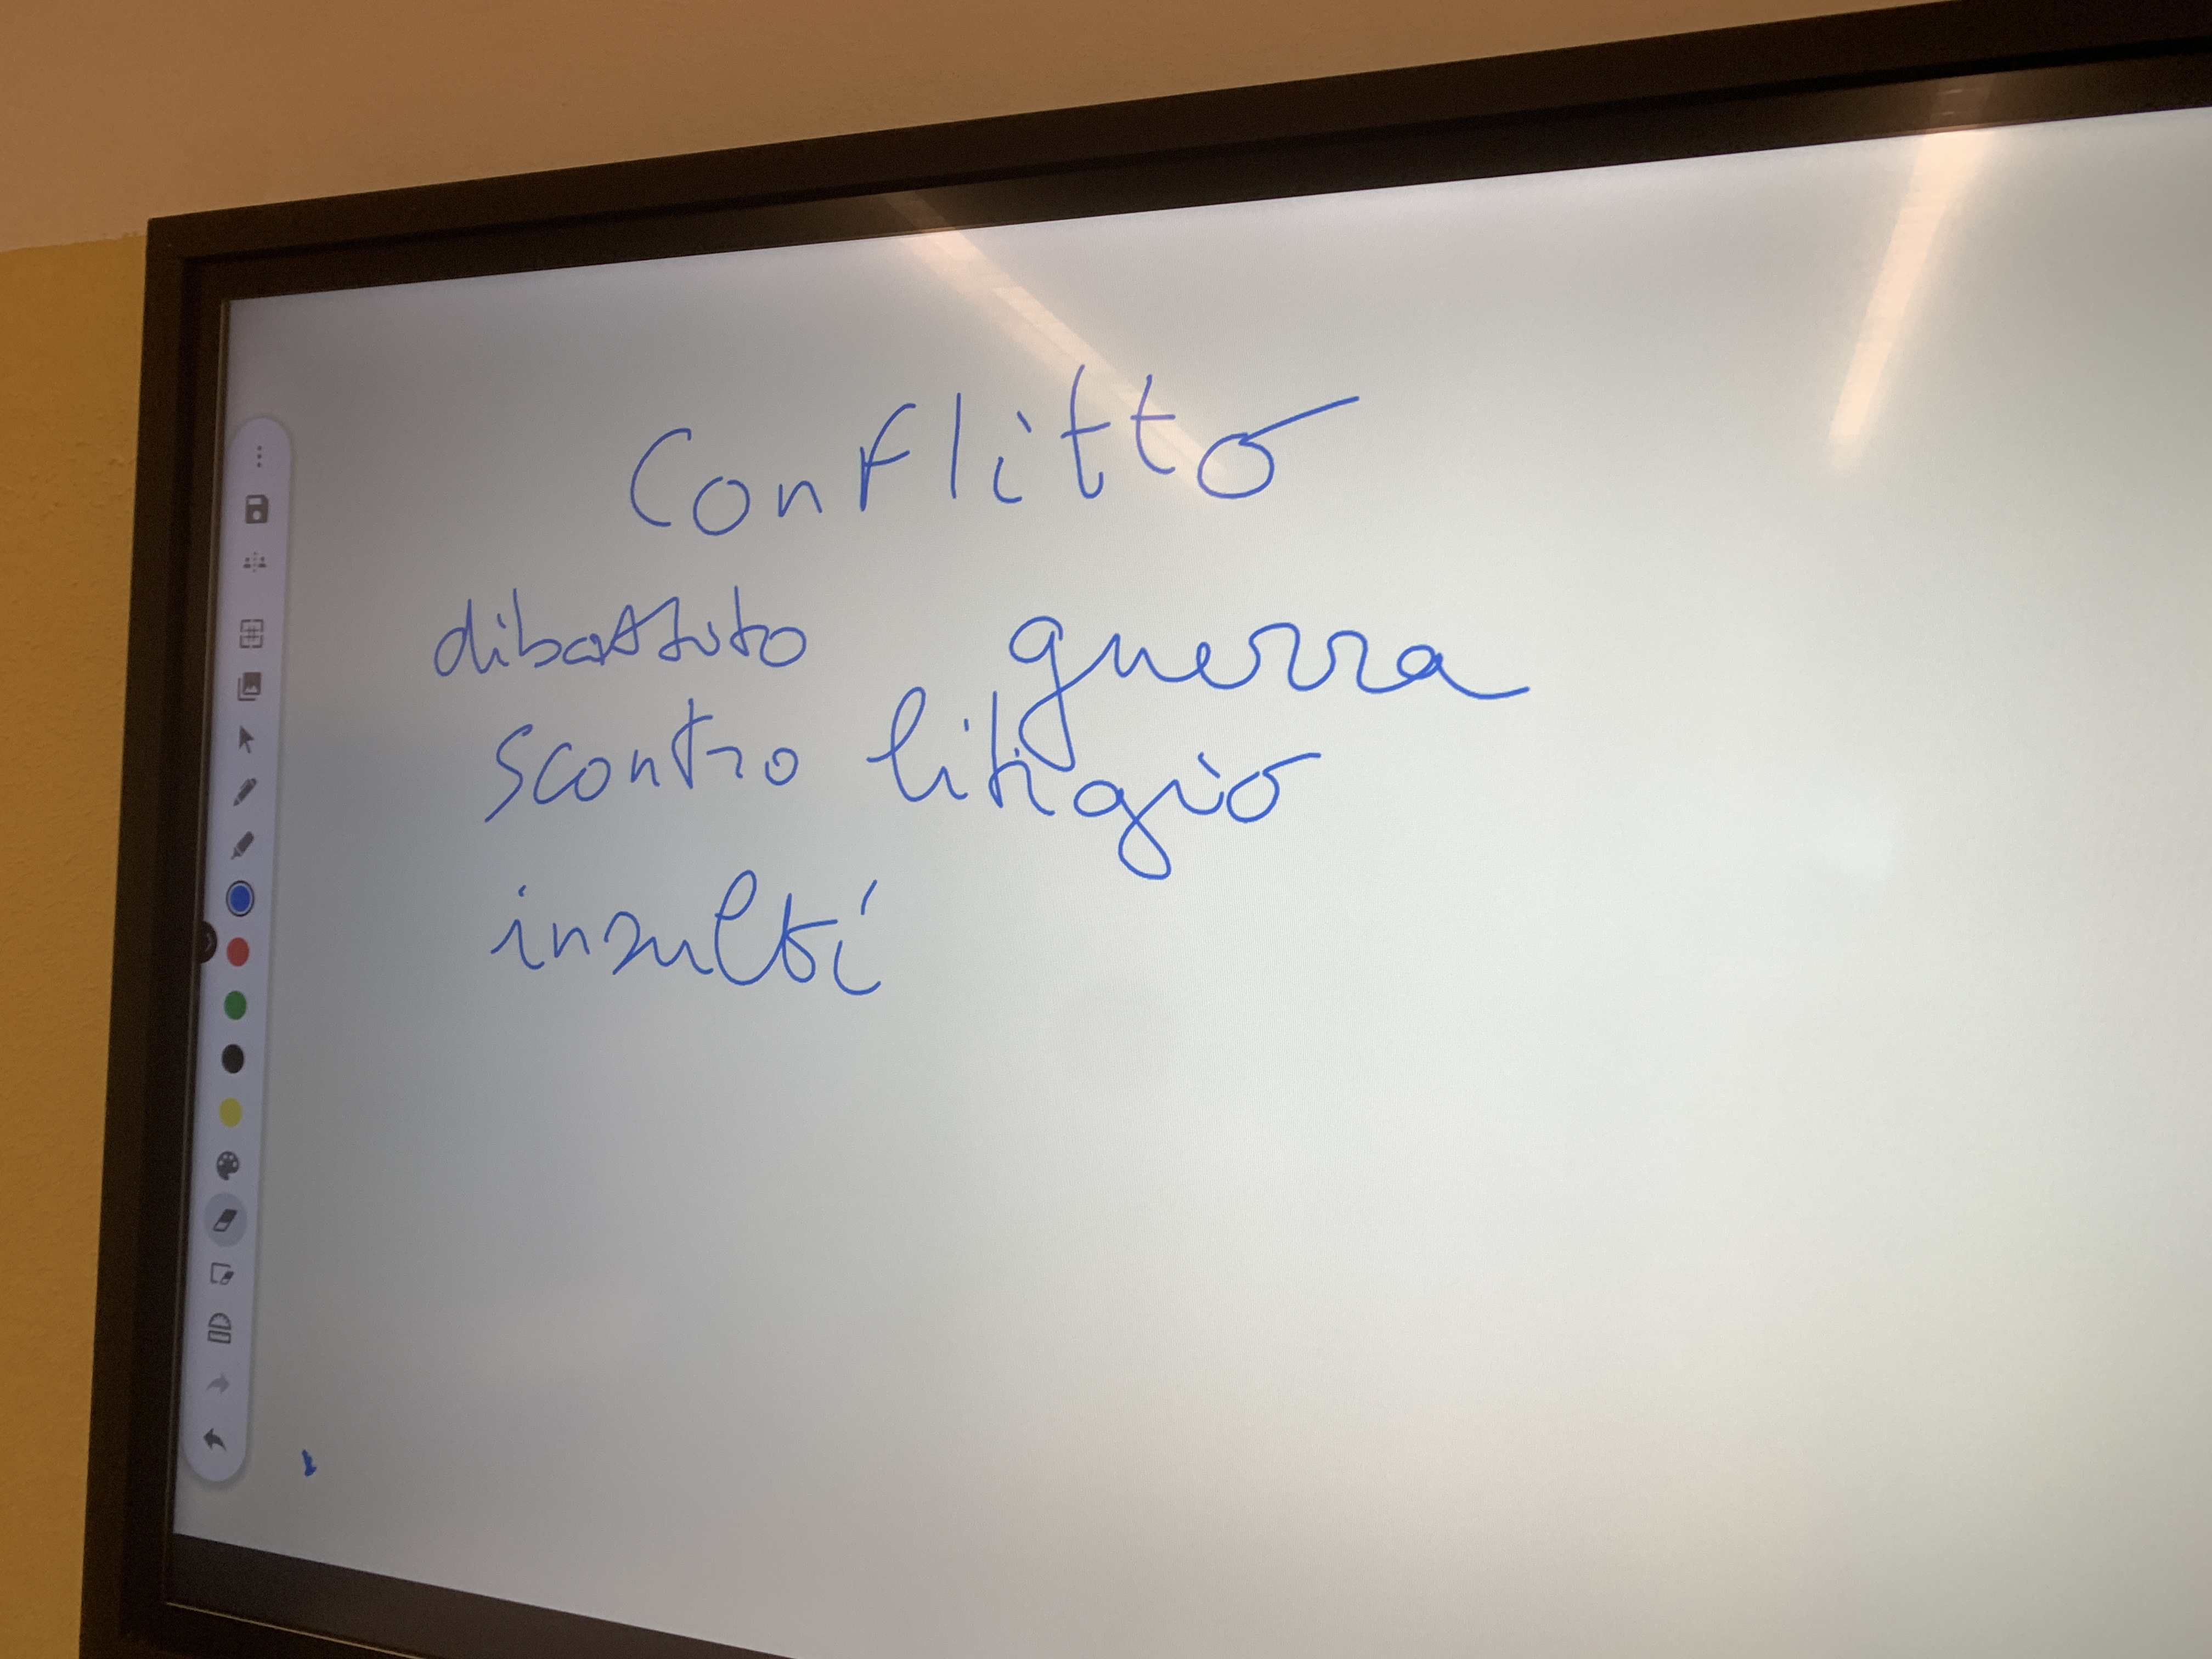 Conflitto
dibattuto guerra
scontro litigio
insulti